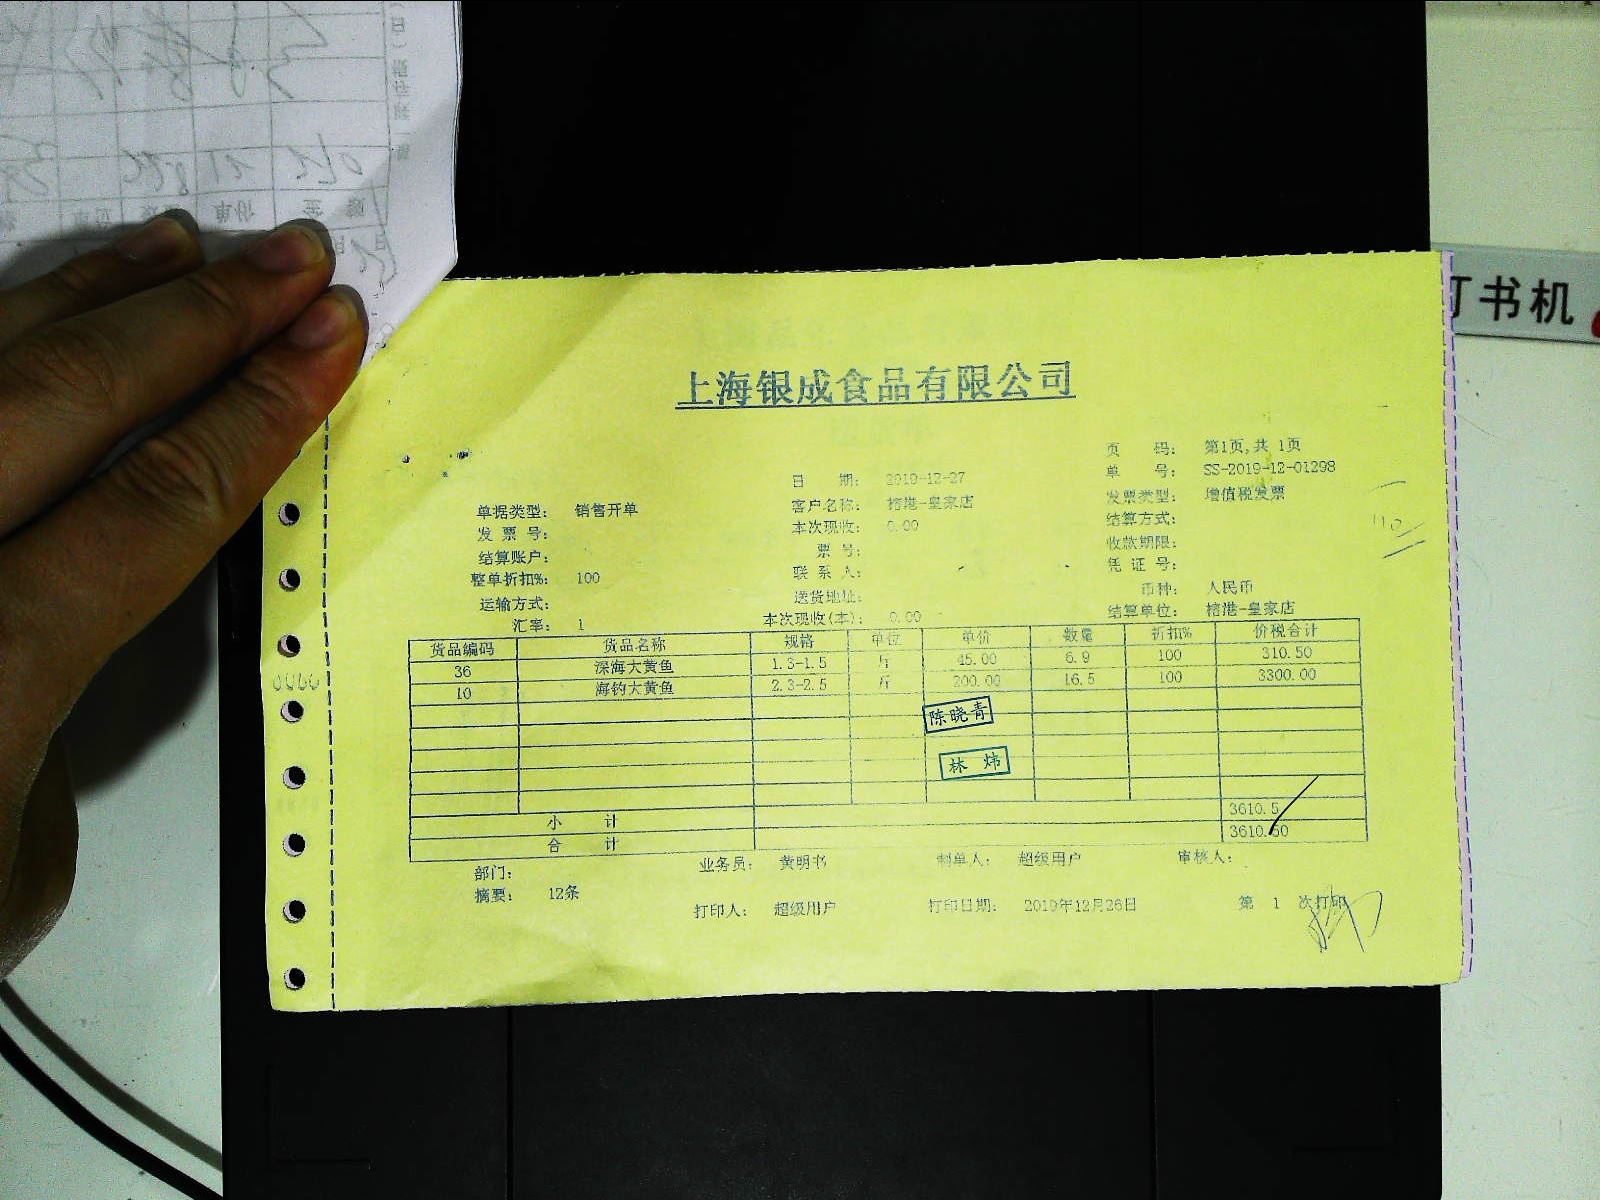 单价
金额
订书机
上海银成食品有限公司
页 码: 第1页,共 1页
日 期: 2019-12-27 单 号: SS-2019-12-01298
单据类型: 销售开单 客户名称: 榕港-皇家店 发票类型: 增值税发票
发 票 号: 本次现收: 0.00 结算方式:
结算账户: 票 号: 收款期限:
整单折扣%: 100 联 系 人: 凭 证 号:
运输方式: 送货地址: 币种: 人民币
汇率: 1 本次现收(本): 0.00 结算单位: 榕港-皇家店
货品编码 货品名称 规格 单位 单价 数量 折扣% 价税合计
36 深海大黄鱼 1.3-1.5 斤 45.00 6.9 100 310.50
10 海钓大黄鱼 2.3-2.5 斤 200.00 16.5 100 3300.00
陈晓青
林 炜
小 计 3610.5
合 计 3610.50
部门: 业务员: 黄明书 制单人: 超级用户 审核人:
摘要: 12条
打印人: 超级用户 打印日期: 2019年12月26日 第 1 次打印